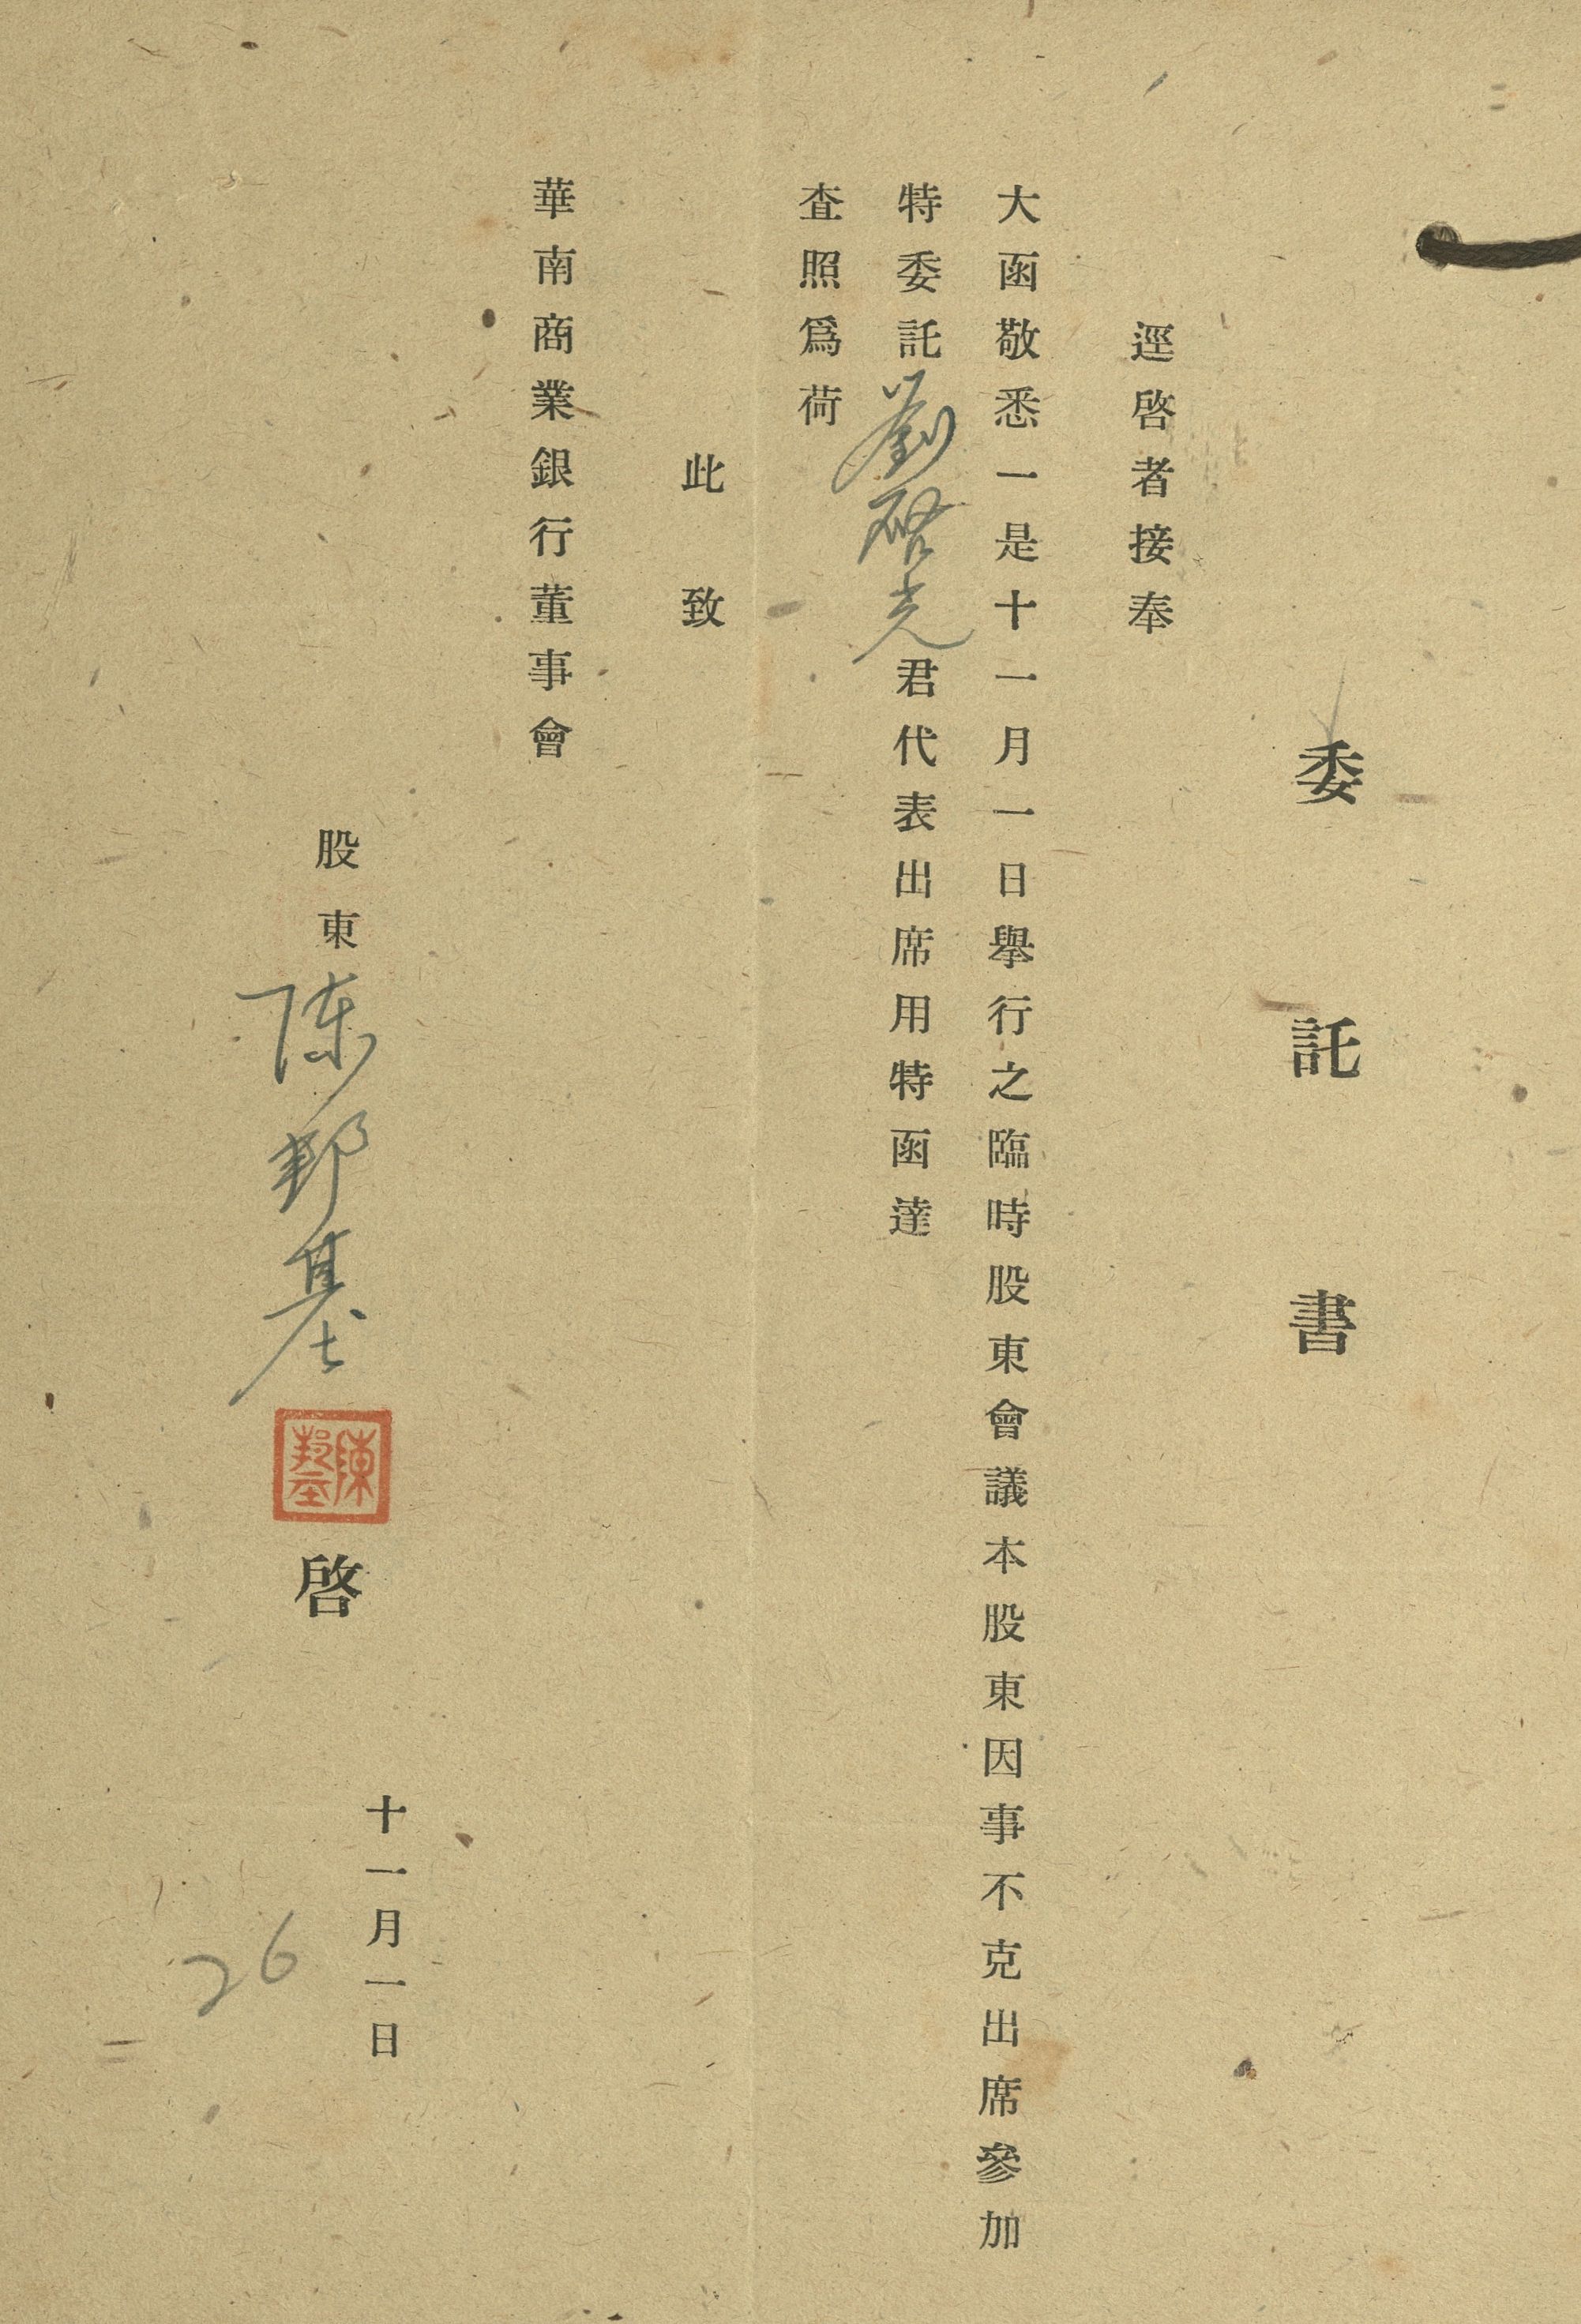 委託書
逕啓者接奉
大函敬悉一是十一月一日舉行之臨時股東會議本股東因事不克出席參加
特委託劉啓光君代表出席用特函達
查照爲荷
此致
華南商業銀行董事會
股東陳邦基
陳邦基
啓
十一月一日
26